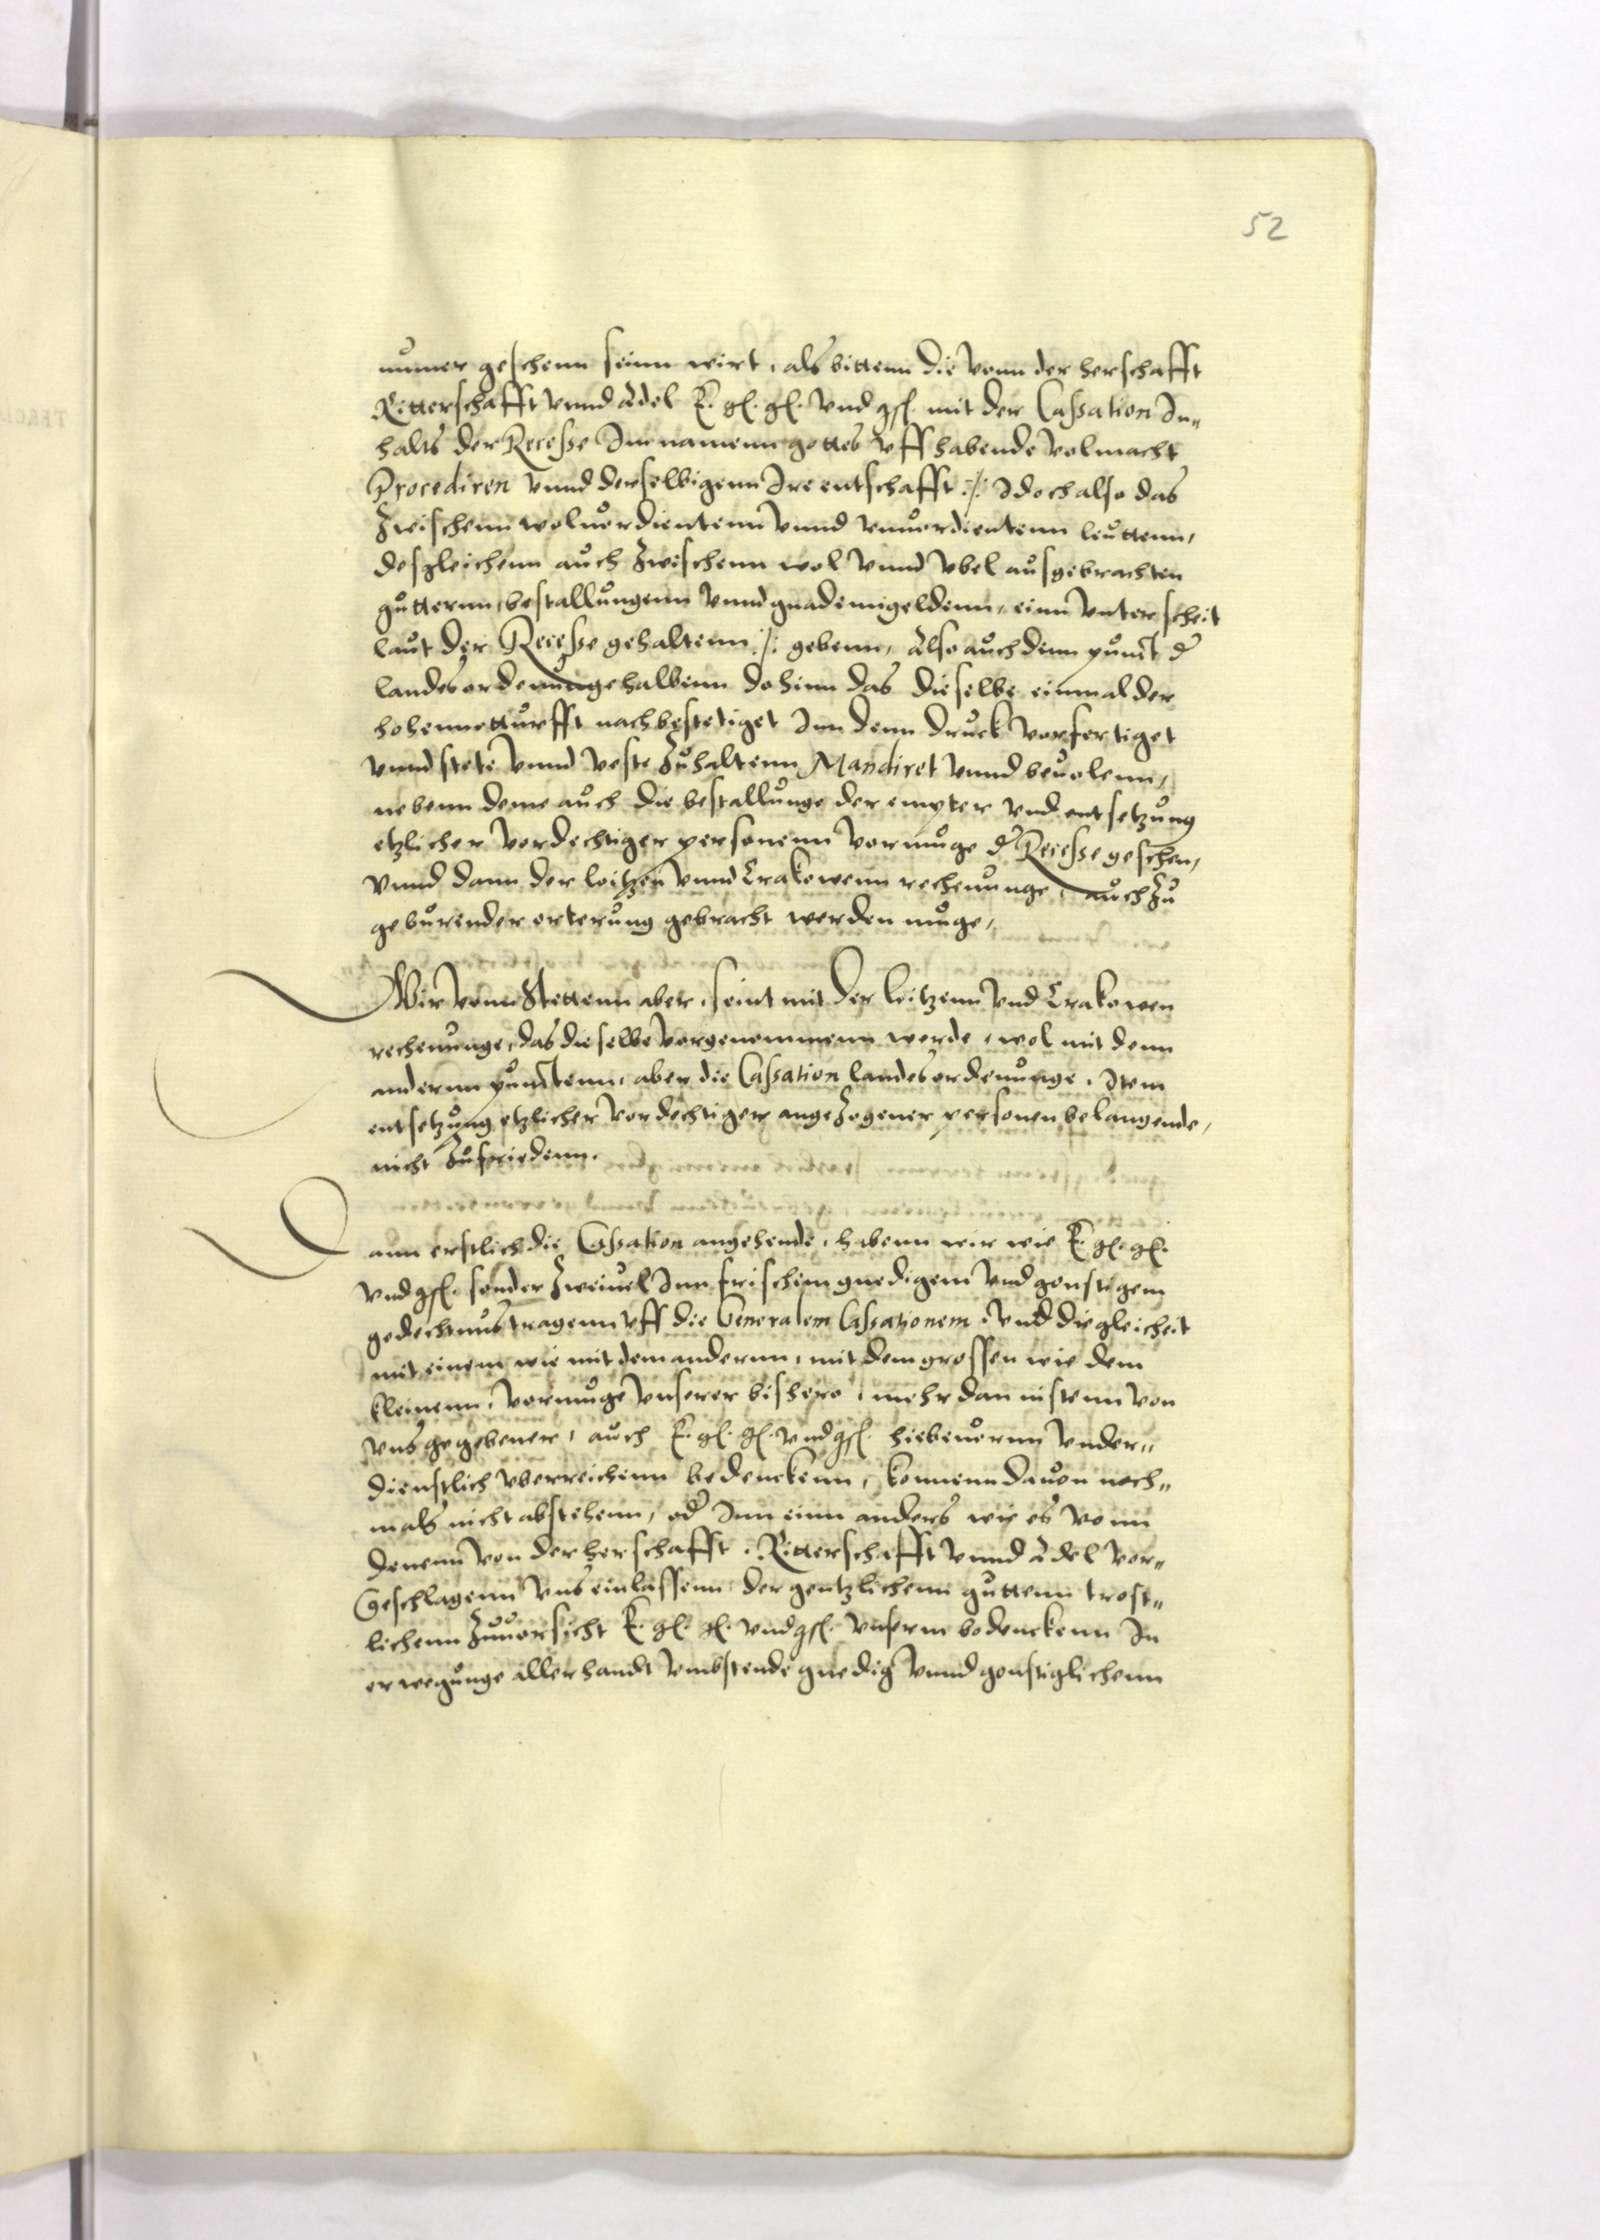 52
numer geschenn seinn wirt, als bittenn die vonn der herschafft
Ritterschafft vnnd Adel E. gl. gl. vnd gsl. mit der Cassation In„
halts der Recesse Im namenn gottes vff habende volmacht
Procediren vnnd derselbigenn Ire entschafft :/: Idoch also das
Zwischenn woluerdientenn vnnd vnuerdientenn leuttenn,
desgleichenn auch Zwischenn wol vnnd vbel ausgebrachten
gutternn, bestallungenn vnnd gnadenngeldenn, einn vnterscheit
laut der Recesse gehaltenn :/: gebenn, Also auch denn punct d
landesordenunge halbenn dohinn das dieselbe einmal der
hohennotturfft nach bestetiget Inn denn druck vorfertiget
vnnd stete vnnd veste Zuhaltenn Mandiret vnnd beuolenn,
nebenn deme auch die bestallunge der empter vnd entsetzung
etzlicher vordechtiger personenn vormuge d Recesse geschen,
Vnnd dann der loitzen vnnd Crakowenn rechenunge, auch Zu
geburender orterung gebracht werden muge,
Wir vonn Stettenn aber, seint mit der loitzenn vnd Crakowen
rechenunge, das dieselbe vorgenommenn werde, wol mit denn
andernn punctenn, aber die Cassation landesordenunge. Item
entsetzung etzlicher vordechtiger angeZogener personen belangende,
nicht Zufriedenn.
Dann erstlich die Cassation angehende, habenn wir wie E. gl. gl.
vnd gsl. sonder Zweiuel Inn frischem gnedigem vnd gonstigem
gedechtnus tragenn vff die Generalem Cassationem. vnd die gleicheit
mit einem wie mit dem andernn, mit dem grossen wie dem
kleinenn, vormuge vnserer bishero, mehr dan einstenn von
vns gegebener, auch E. gl. gl. vnd gsl. hiebeuornn vnder„
dienstlich vberreichenn bedenckenn, konnenn dauon noch„
mals nicht abstehenn, od Inn einn anders wie es vonn
denenn von der herschafft. Ritterschafft vnnd Adel vor„
Geschlagenn vns einlassenn, der gentzlichenn guttenn trost„
lichenn Zuuorsicht E. gl. gl. vnd gsl. vnserm bedenckenn In
erwegunge allerhandt vmbstende gnedig vnnd gonstiglichenn